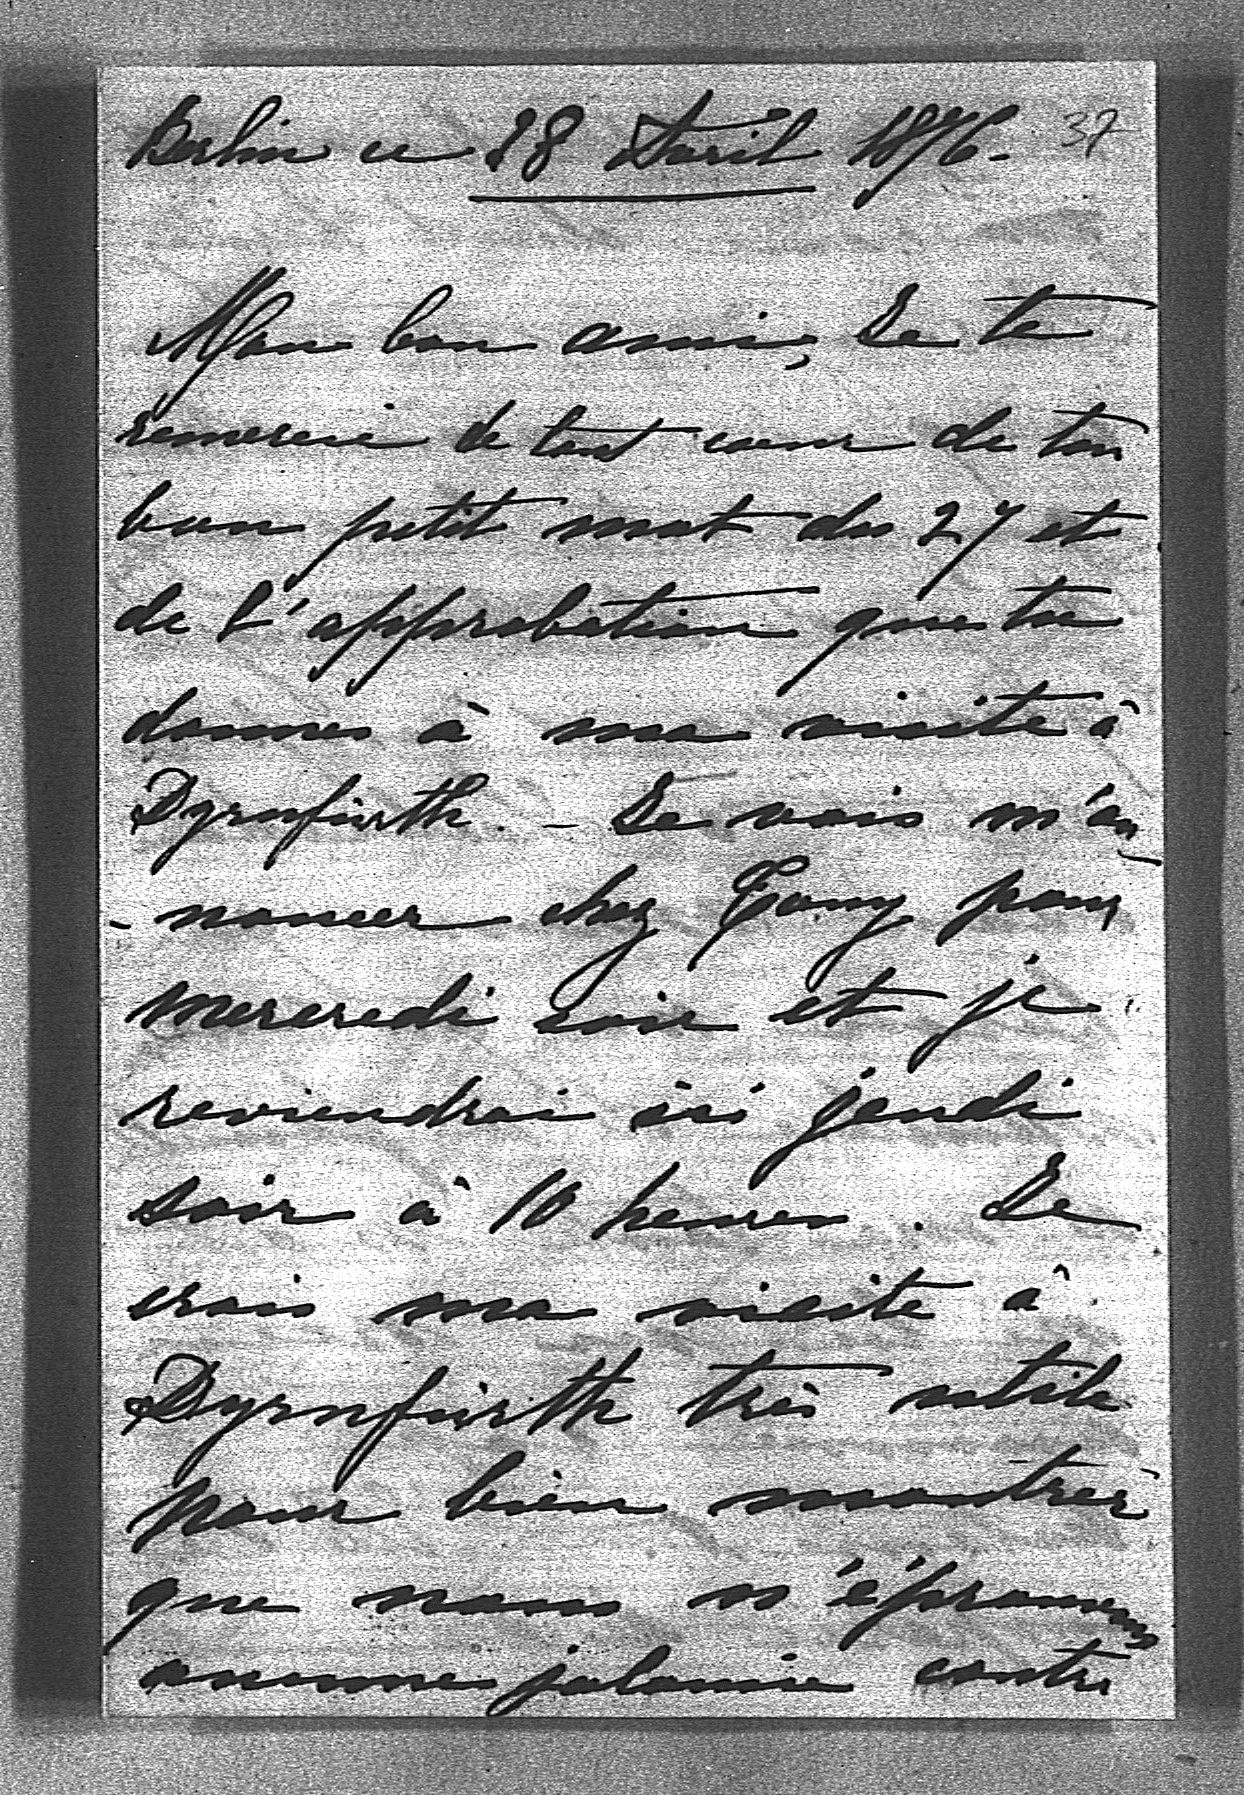 Berlin ce 28 Avril 1876. 37
Mon bon ami, Je te
remercie de tout cœur de ton
bon petit mot du 27 et
de l'approbation que tu
donnes à ma visite à
Dyrnfurth. – Je vais m'an-
-noncer chez Tony pour
mercredi soir et je
reviendrai ici jeudi
soir à 10 heures. Je
crois ma visite à
Dyrnfurth très utile
pour bien montrer
que nous n'éprouvons
aucune jalousie contre